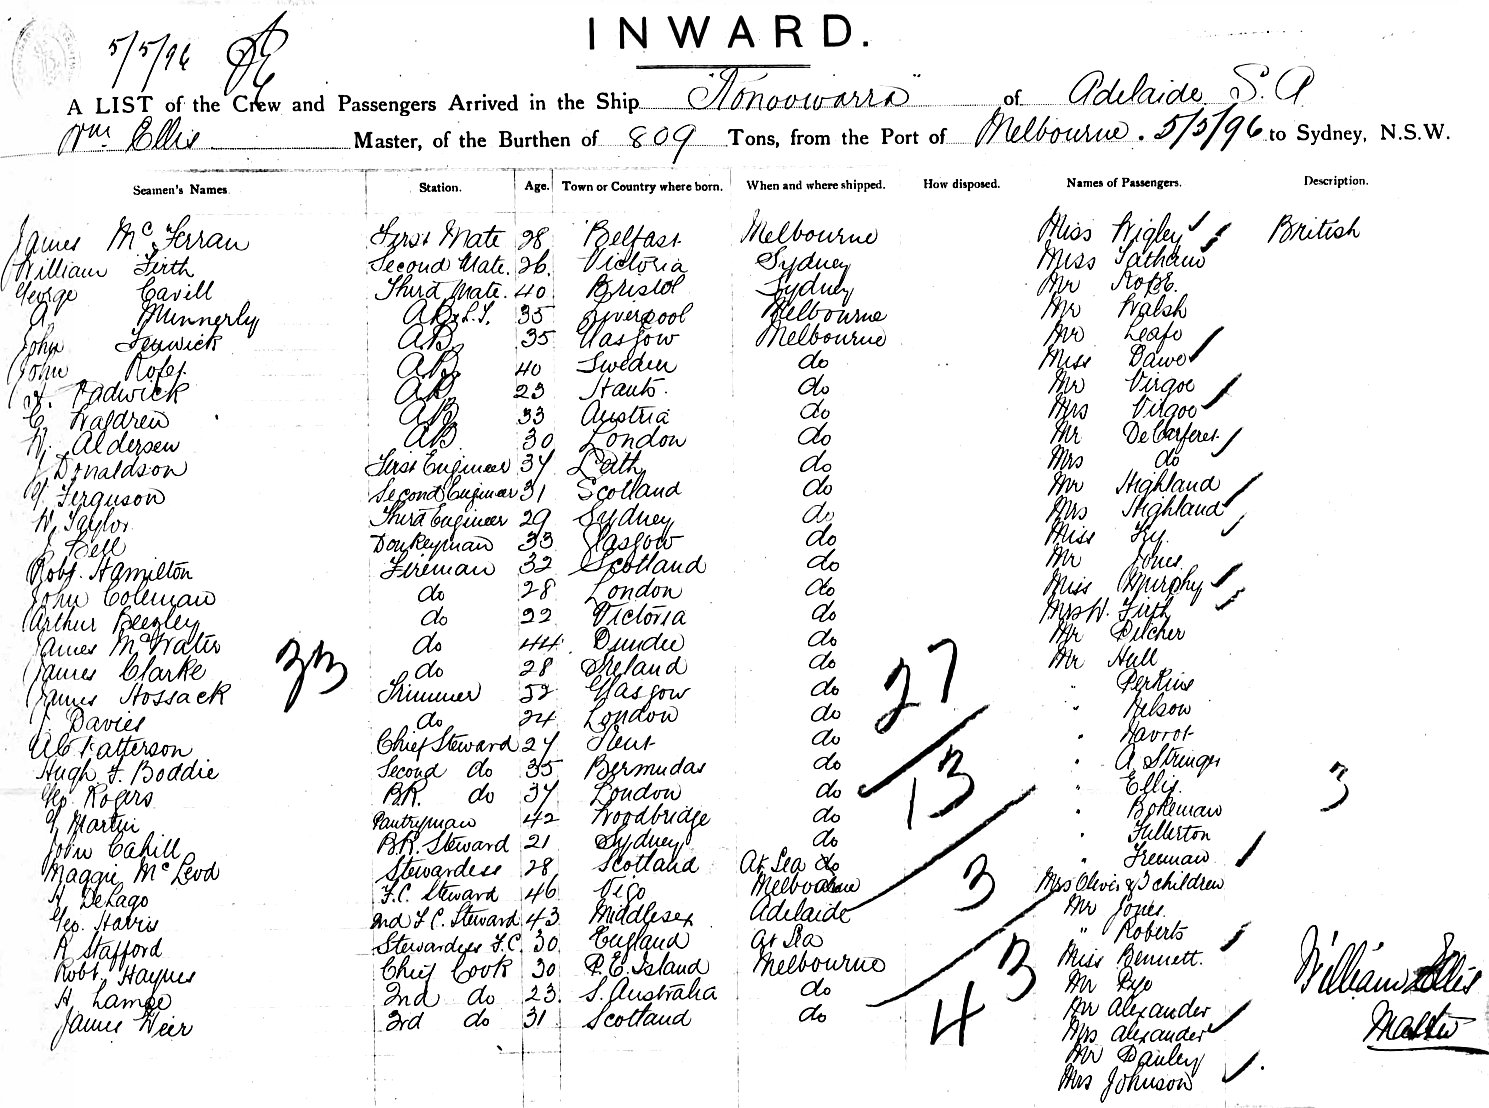 INWARD.
5/5/96
A LIST of the Crew and Passengers Arrived in the Ship "Konoowarra" of Adelaide S.A
Wm. Ellis Master, of the Burthen of 809 Tons, from the Port of Melbourne. 5/5/96 to Sydney, N.S.W.
Seamen's Names Station. Age. Town or Country where born. When and where shipped. How disposed. Names of Passengers. Description.
James McFerran First Mate 28 Belfast Melbourne Miss Wigley British
William Firth Second Mate. 26. Victoria Sydney Miss Tatham
George Cavill Third Mate. 40 Bristol Sydney Mr
A. Minnerly AB 35 Liverpool Melbourne Mr Walsh
John Fenwick AB 35 Glasgow Melbourne Mr
John AB. 40 Sweden do Miss Dawe
Padwick AB 23 Hants. do Mr Virgoe
C. Waldren AB 33 Austria do Mrs Virgoe
W. Aldersen AB 30 London do Mr
J Donaldson First Engineer 37 Leith do Mrs do
Ferguson Second Engineer 31 Scotland do Mr Highland
W Taylor Third Engineer 29 Sydney do Mrs Highland
J Bell Donkeyman 33 Glasgow do Miss
Robt. Hamilton Fireman 32 Scotland do Mr Jones
John Coleman do 28 London do Miss Murphy
Arthur Beezley do 22 Victoria do Mrs W. Firth
James McWater do 44 Dundee do Mr Pilcher
James Clarke do 28 Ireland do Mr Hull
James Hossack Trimmer 32 Glasgow do " Perkins
J. Davies do 24 London do " Nelson
Patterson Chief Steward 27 Kent do "
Hugh F. Boddie Second do 35 Bermudas do " A. Stringer
Geo. Rogers B.R. do 37 London do " Ellis
Martin Pantryman 42 Woodbridge do " Bokeman
John Cahill B.R. Steward 21 Sydney do " Fullerton
Maggie McLeod Stewardess 28 Scotland At Sea do " Freeman
H DeLago F.C. Steward 46 Vigo Melbourne Mrs Oliver & 3 children
Geo. Harris 2nd F.C. Steward 43 Middlesex Adelaide Mr Jones.
R Stafford Stewardess F.C. 30 England at Sea " Roberts
Robt. Haynes Chief Cook 30 P.E. Island Melbourne Miss Bennett.
H. 2nd do 23. S. Australia do Mr Pye
James Weir 3rd do 31 Scotland do Mr Alexander
Mrs Alexander
Mr
Mrs Johnson
33
27
13
3
3
4
3
William Ellis
Master